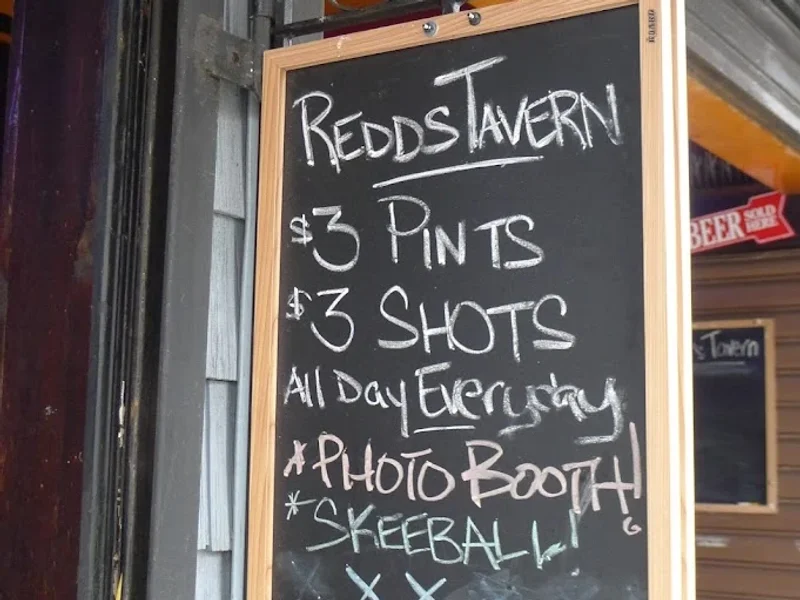 REDDS TAVERN
$3 PINTS
$3 SHOTS
All Day Everyday
*PHOTO BOOTH!
*SKEEBALL!
X X
BEER SOLD HERE
s Tavern